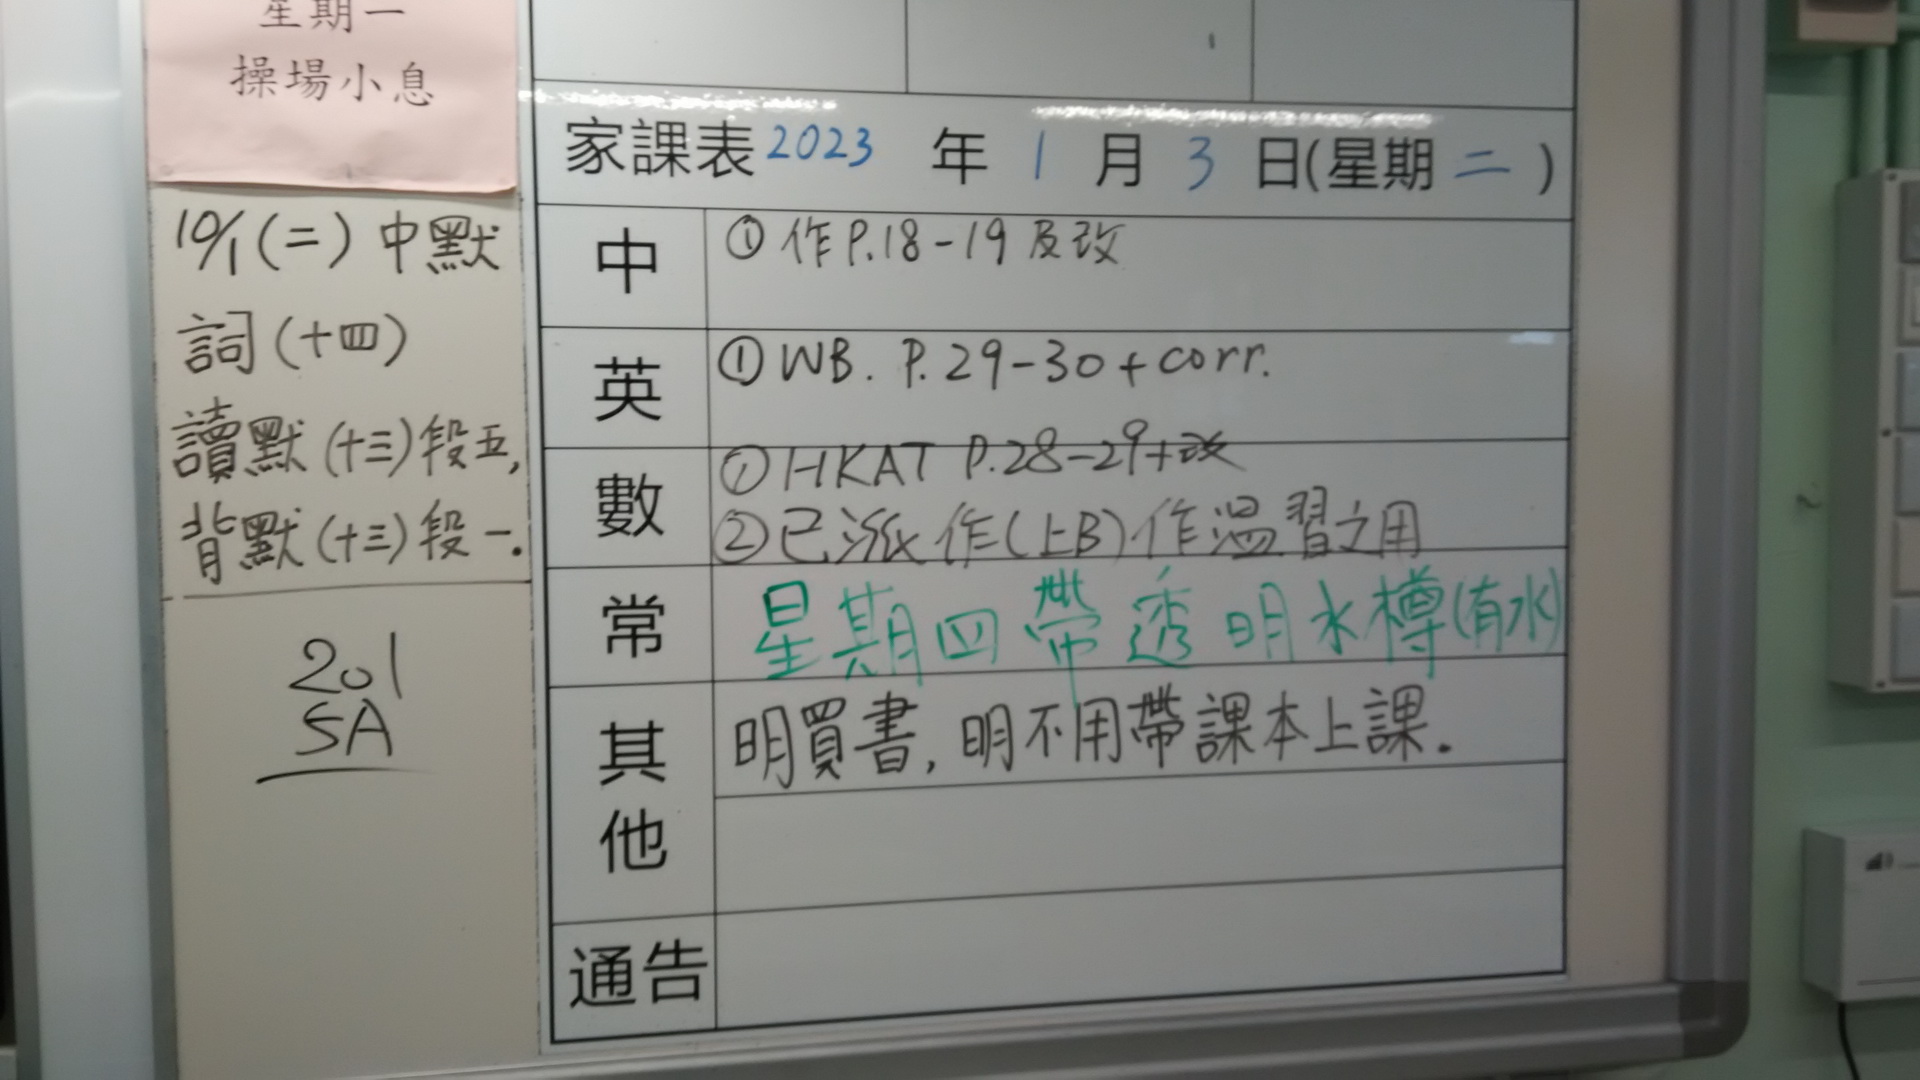 星期一
操場小息
10/1(二) 中默
詞(十四)
讀默(十三)段五,
背默(十三)段一.
201
5A
家課表 2023 年 1 月 3 日(星期 二 )
中
① 作 P.18-19 及改
英
① WB. P.29-30 + corr.
數
① HKAT P.28-29+改
② 已派作(上B)作温習之用
常
星期四帶透明水樽(有水)
其他
明買書, 明不用帶課本上課.
通告